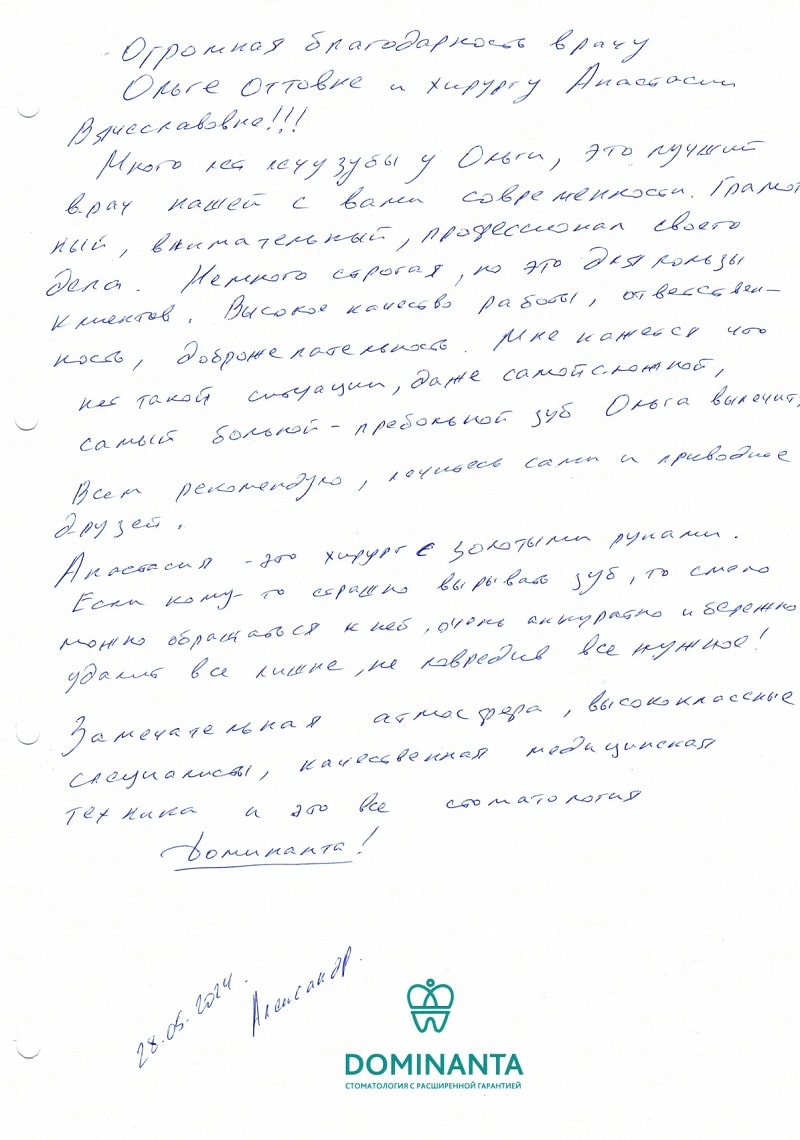 Огромная благодарность врачу
Ольге Оттовне и хирургу Анастасии
Вячеславовне!!!
Много лет лечу зубы у Ольги, это лучший
врач нашей с вами современности. Грамот
ный, внимательный, профессионал своего
дела. Немного строгая, но это для пользы
клиентов. Высокое качество работы, ответствен-
ность, доброжелательность. Мне кажется что
нет такой ситуации, даже самой сложной,
самый больной-пребольной зуб Ольга вылечит,
Всем рекомендую, лечитесь сами и приводите
друзей.
Анастасия - это хирург с золотыми руками.
Если кому-то страшно вырывать зуб, то смело
можно обращаться к ней, очень аккуратно и бережно
удалит все лишне, не повредив все нужное!
Замечательная атмосфера, высококлассные
специалисты, качественная медицинская
техника и это все стоматология
Доминанта!
28.05.2024.
Александр.
DOMINANTA
СТОМАТОЛОГИЯ С РАСШИРЕННОЙ ГАРАНТИЕЙ